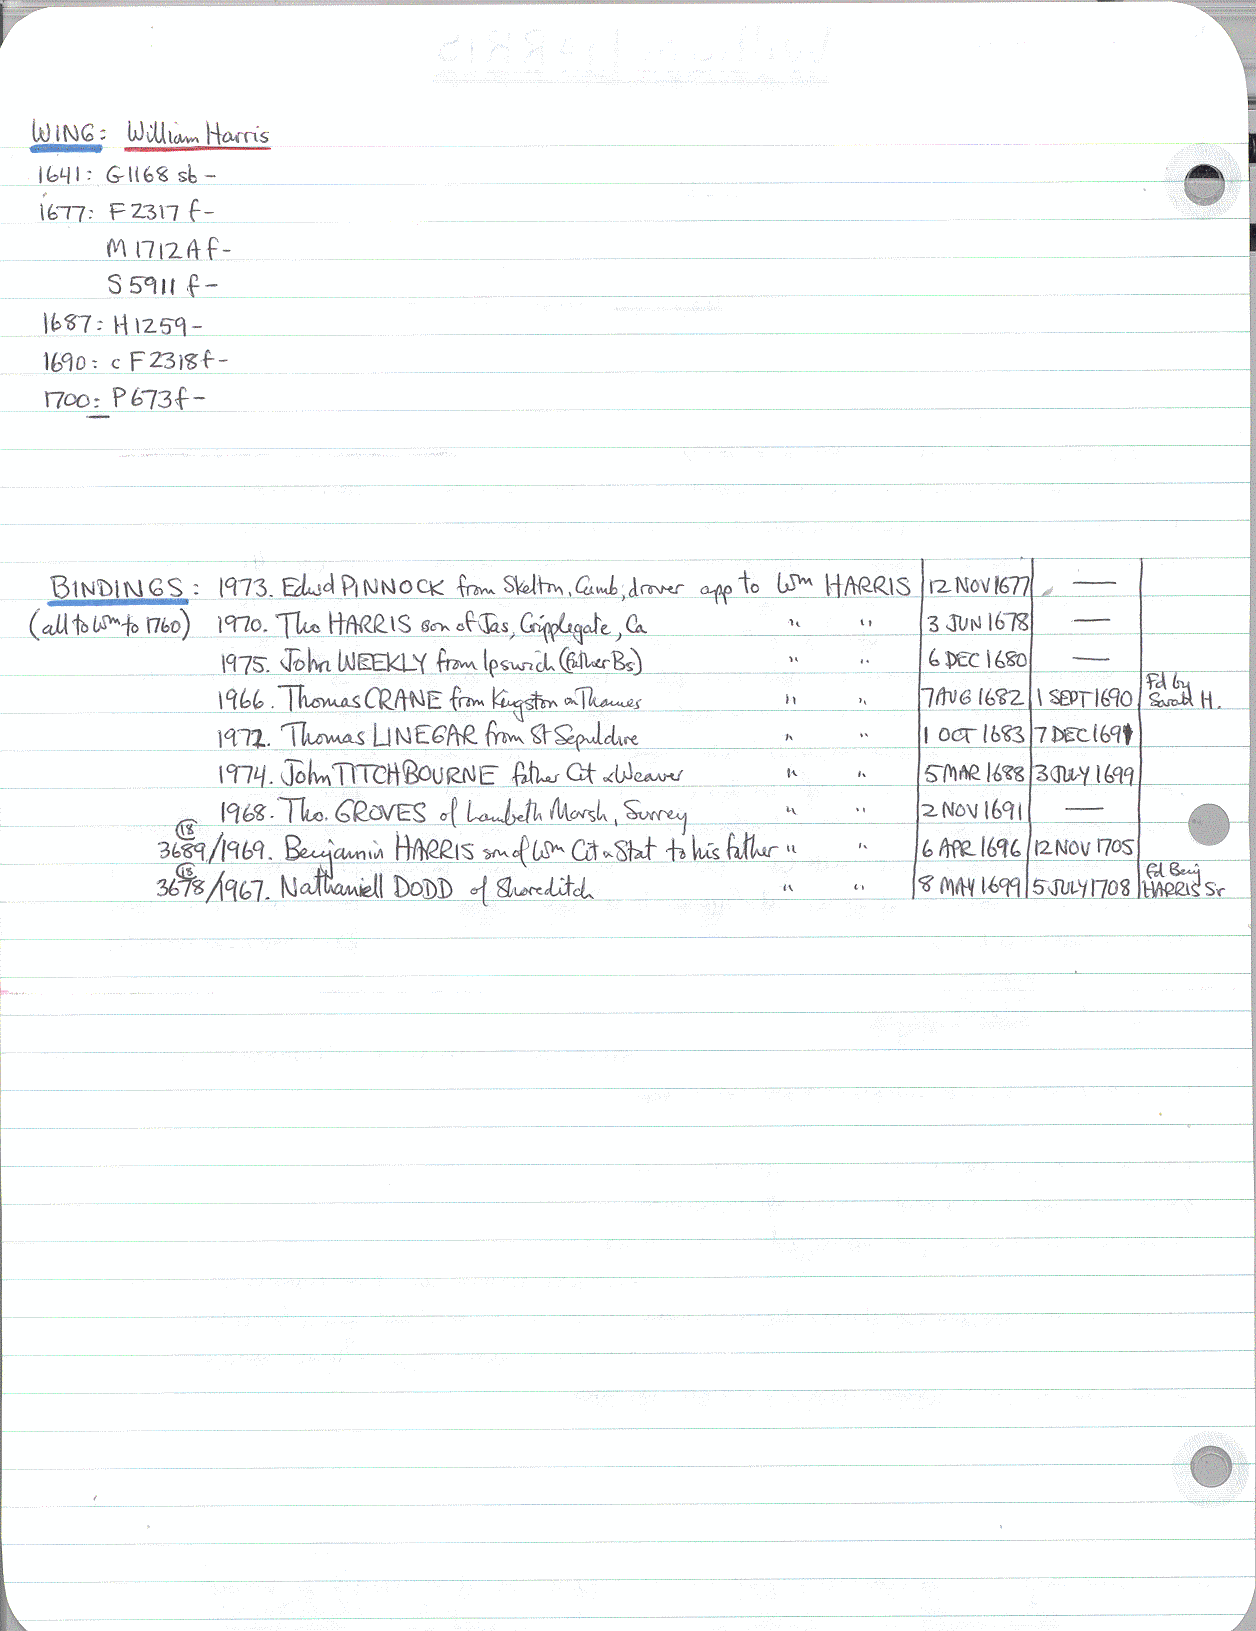 WING: William Harris
1641: G1168 sb -
1677: F2317 f -
M1712A f -
S5911 f -
1687: H1259 -
1690: c F2318 f -
1700: P673 f -
BINDINGS: 1973. Edwd PINNOCK from Skelton, Cumb; drover app to Wm HARRIS 12 NOV 1677 —
(all to Wm to 1760) 1970. Tho HARRIS son of Jas, Cripplegate, Ca " " 3 JUN 1678 —
1975. John WEEKLY from Ipswich (father Bs) " " 6 DEC 1680 —
1966. Thomas CRANE from Kingston on Thames " " 7 AUG 1682 1 SEPT 1690 Fd by Sarah H.
1972. Thomas LINEGAR from St Sepulchre " " 1 OCT 1683 7 DEC 1691
1974. John TITCHBOURNE father Cit & Weaver " " 5 MAR 1688 3 JULY 1699
1968. Tho. GROVES of Lambeth Marsh, Surrey " " 2 NOV 1691 —
(18)
3689/1969. Benjamin HARRIS son of Wm Cit & Stat to his father " " 6 APR 1696 12 NOV 1705
(18)
3678/1967. Nathaniell DODD of Shoreditch " " 8 MAY 1699 5 JULY 1708 Fd Benj HARRIS Sr